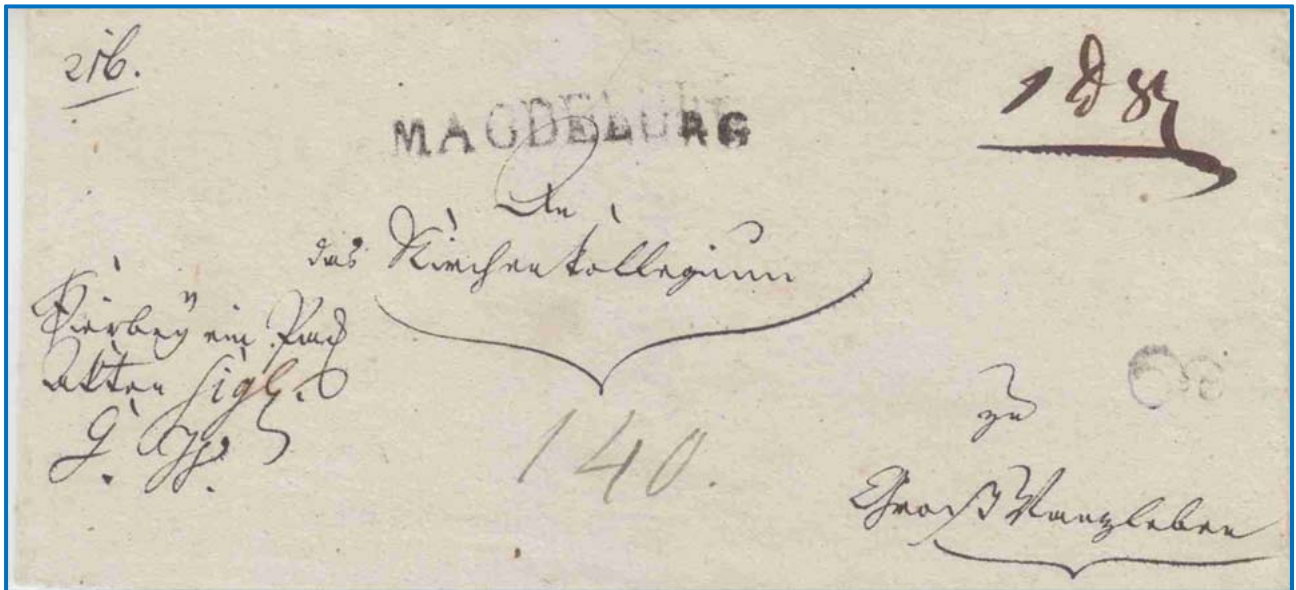 216.
MAGDEBURG
An
das Kirchenkollegium
Hierbey ein Pack
Akten sigl.
G. W.
140.
zu
Groß Wanzleben